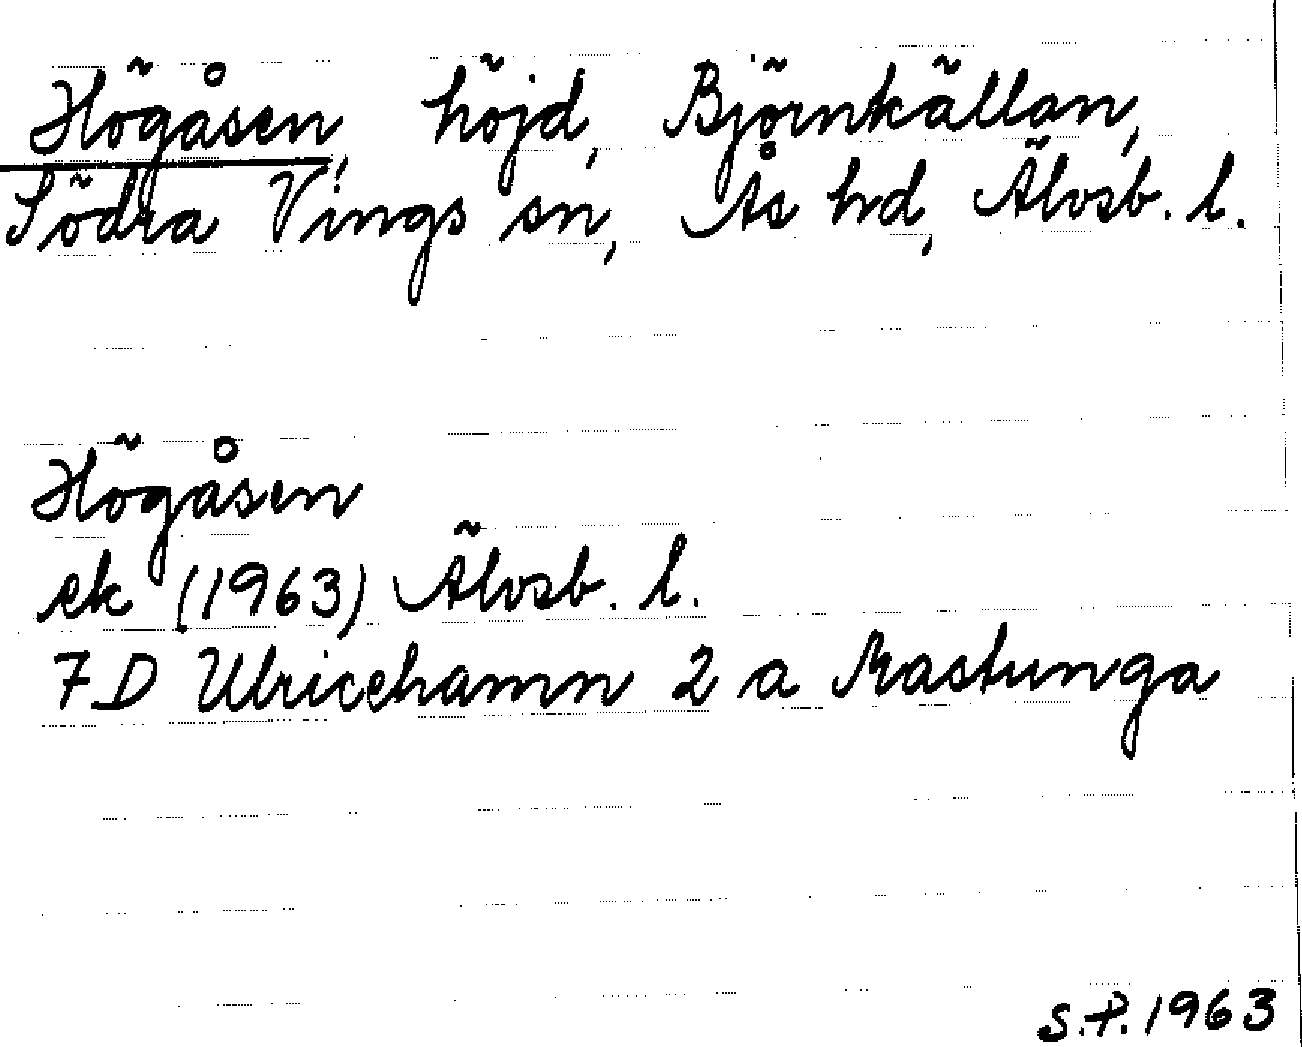 Högåsen, höjd, Björnkällan,
Södra Vings sn, Ås hd, Älvsb. l.
Högåsen
ek (1963) Älvsb. l.
7D Ulricehamn 2 a Rastunga
S.P. 1963